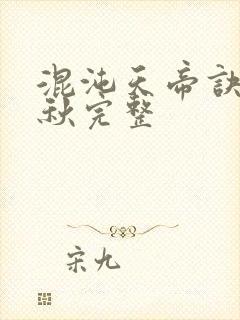 混沌天帝诀
秋完整
宋九